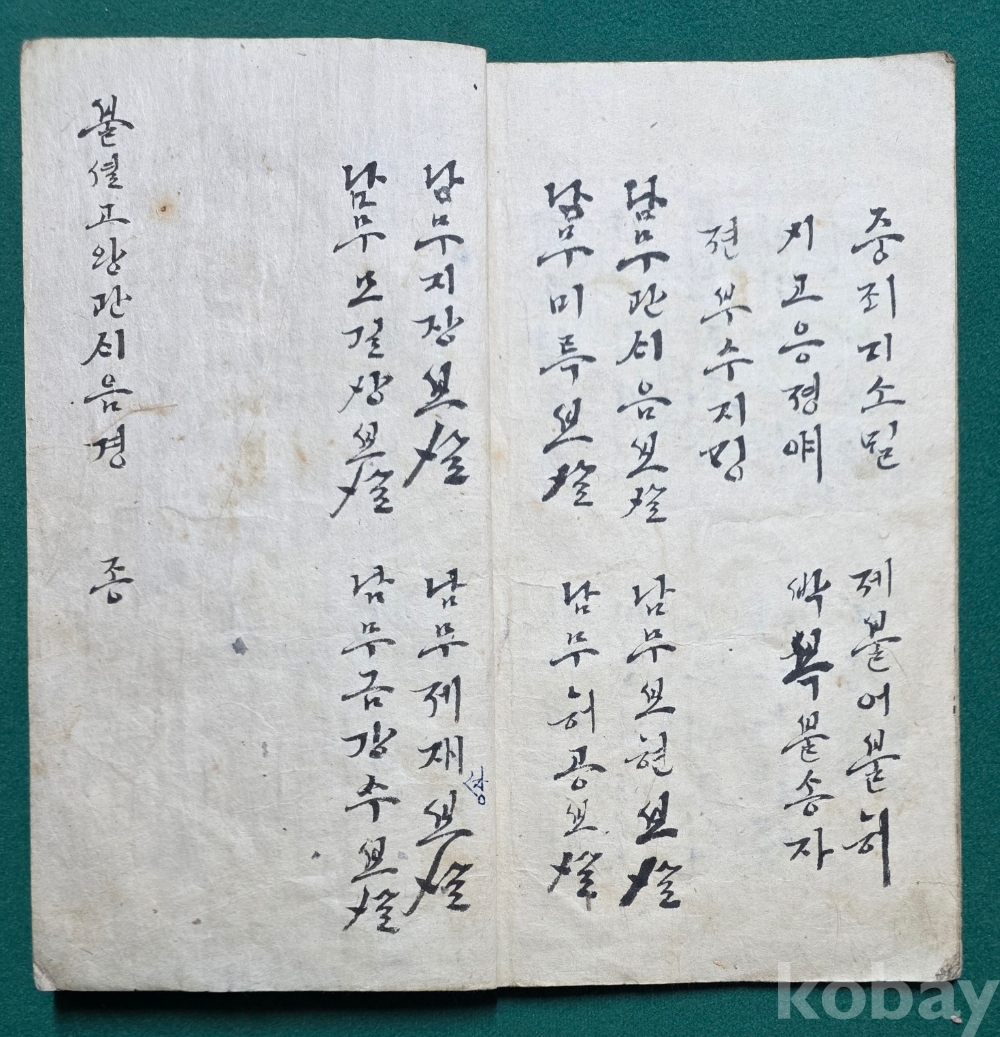 중죄지소멸 제불어불허
시고응졍예 박복불송자
젼부수지경
남무관셰음보살 남무보현보살
남무미륵보살 남무허공보살
남무지장보살 남무제재장보살
남무묘길상보살 남무금강수보살
불셜고왕관셰음경 종
kobay